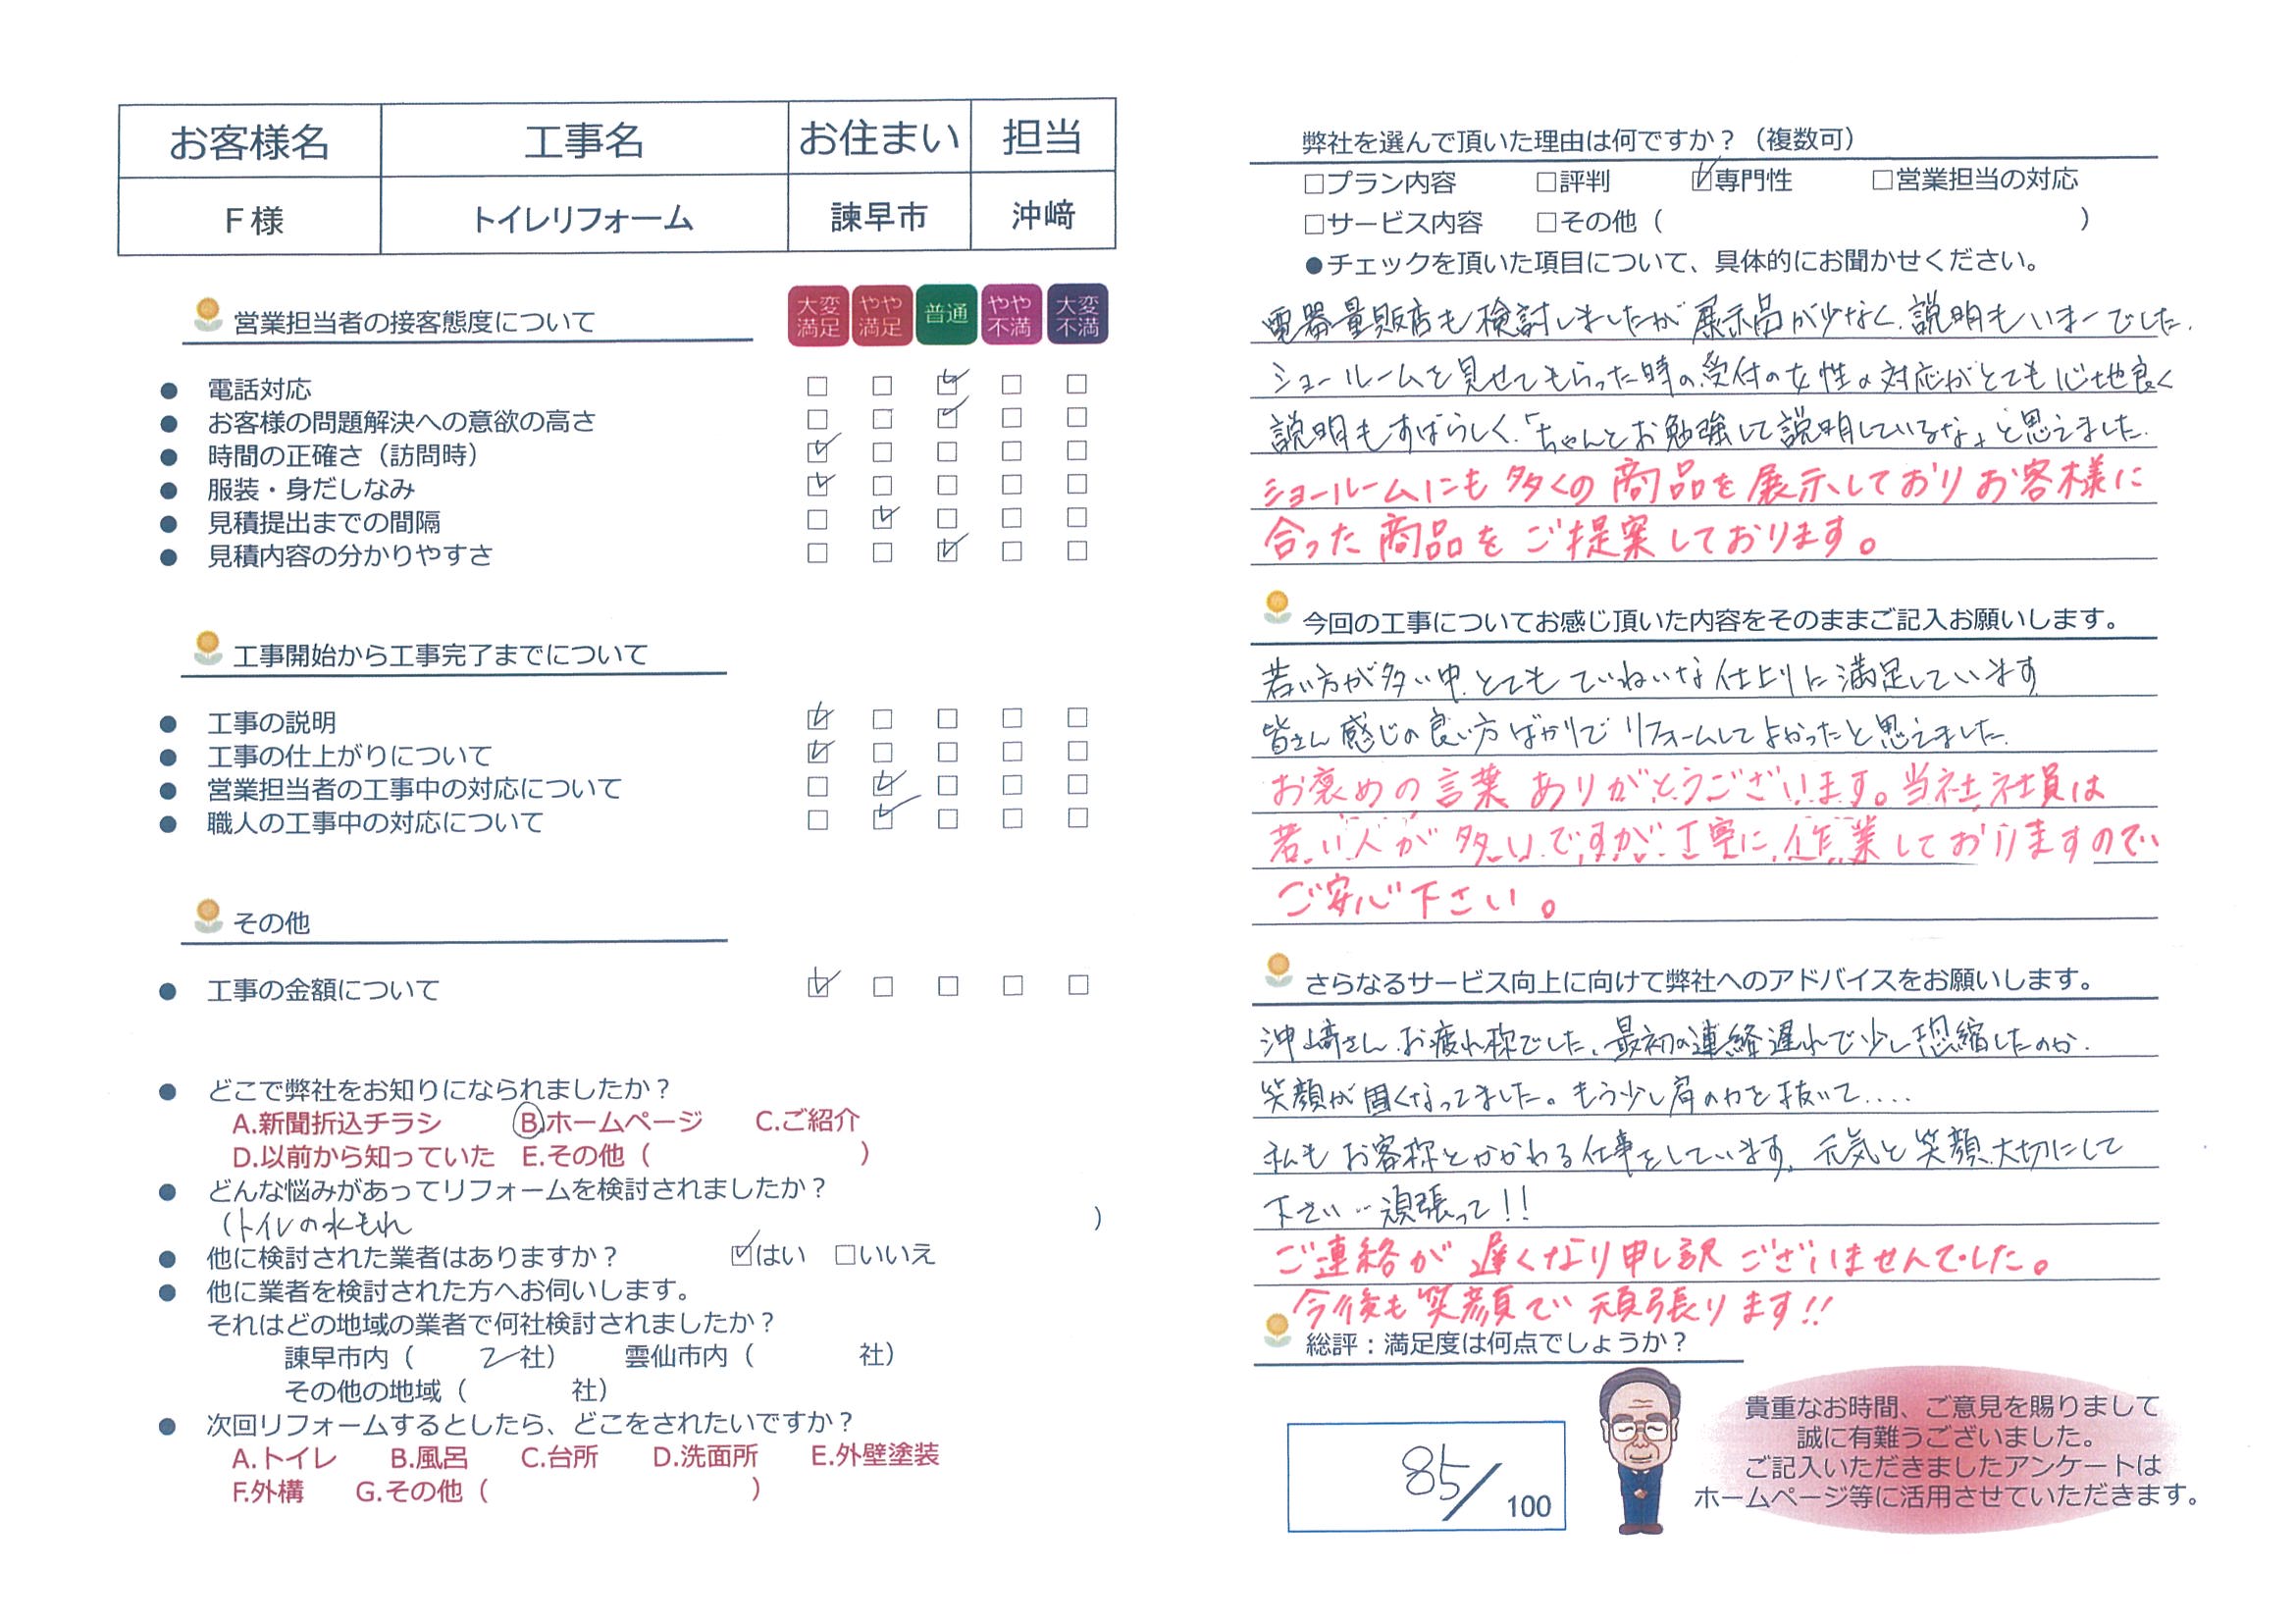 お客様名 工事名 お住まい 担当
F様 トイレリフォーム 諫早市 沖﨑
営業担当者の接客態度について
大変満足 やや満足 普通 やや不満 大変不満
● 電話対応 □ □ ☑ □ □
● お客様の問題解決への意欲の高さ □ □ ☑ □ □
● 時間の正確さ（訪問時） ☑ □ □ □ □
● 服装・身だしなみ ☑ □ □ □ □
● 見積提出までの間隔 □ ☑ □ □ □
● 見積内容の分かりやすさ □ □ ☑ □ □
工事開始から工事完了までについて
● 工事の説明 ☑ □ □ □ □
● 工事の仕上がりについて ☑ □ □ □ □
● 営業担当者の工事中の対応について □ ☑ □ □ □
● 職人の工事中の対応について □ ☑ □ □ □
その他
● 工事の金額について ☑ □ □ □ □
● どこで弊社をお知りになられましたか？
A.新聞折込チラシ B.ホームページ C.ご紹介
D.以前から知っていた E.その他（ ）
● どんな悩みがあってリフォームを検討されましたか？
（トイレの水もれ ）
● 他に検討された業者はありますか？ ☑はい □いいえ
● 他に業者を検討された方へお伺いします。
それはどの地域の業者で何社検討されましたか？
諫早市内（ 2 社） 雲仙市内（ 社）
その他の地域（ 社）
● 次回リフォームするとしたら、どこをされたいですか？
A.トイレ B.風呂 C.台所 D.洗面所 E.外壁塗装
F.外構 G.その他（ ）
弊社を選んで頂いた理由は何ですか？（複数可）
□プラン内容 □評判 ☑専門性 □営業担当の対応
□サービス内容 □その他（ ）
●チェックを頂いた項目について、具体的にお聞かせください。
電器量販店も検討しましたが展示品が少なく、説明もいまーでした。
ショールームを見せてもらった時の受付の女性の対応がとても心地良く
説明もすばらしく、「ちゃんとお勉強して説明しているな」と思えました。
ショールームにも多くの商品を展示しておりお客様に
合った商品をご提案しております。
今回の工事についてお感じ頂いた内容をそのままご記入お願いします。
若い方が多い中、とてもていねいな仕上りに満足しています
皆さん感じの良い方ばかりでリフォームしてよかったと思えました。
お褒めの言葉ありがとうございます。当社社員は
若い人が多いですが丁寧に作業しておりますので
ご安心下さい。
さらなるサービス向上に向けて弊社へのアドバイスをお願いします。
沖﨑さん、お疲れ様でした、最初の連絡遅れで少し恐縮したのか、
笑顔が固くなってました。もう少し肩の力を抜いて....
私もお客様とかかわる仕事をしています、元気と笑顔、大切にして
下さい…頑張って！！
ご連絡が遅くなり申し訳ございませんでした。
今後も笑顔で頑張ります!!
総評：満足度は何点でしょうか？
85/100
貴重なお時間、ご意見を賜りまして
誠に有難うございました。
ご記入いただきましたアンケートは
ホームページ等に活用させていただきます。